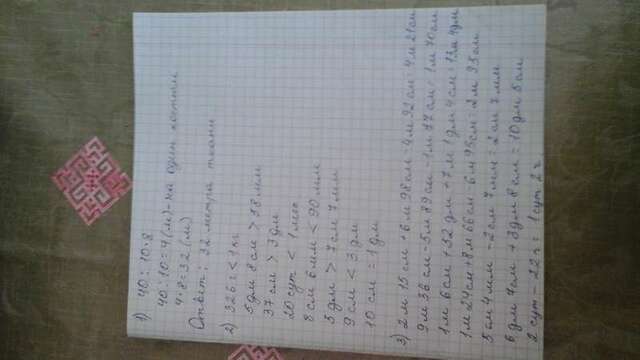 1) 40 : 10 · 8
40 : 10 = 4 (м) - на один костюм
4 · 8 = 32 (м)
Ответ: 32 метра ткани
2) 326 г < 1 кг
5 дм 8 см > 58 мм
37 см > 3 дм
20 сут < 1 мес
8 см 6 мм < 90 мм
5 дм > 7 см 7 мм
9 см < 3 дм
10 см = 1 дм
3) 2 м 15 см + 6 м 98 см 4 м 92 см = 4 м 21 см
9 м 36 см - 5 м 89 см - 1 м 77 см = 1 м 70 см
1 м 6 см + 32 дм + 7 м 1 дм 4 см = 13 м 4 дм
1 м 24 см + 8 м 66 см 6 м 95 см = 2 м 95 см
5 см 4 мм - 2 см 7 мм = 2 см 7 мм
6 дм 7 см + 3 дм 8 см = 10 дм 5 см
2 сут - 22 ч = 1 сут 2 ч